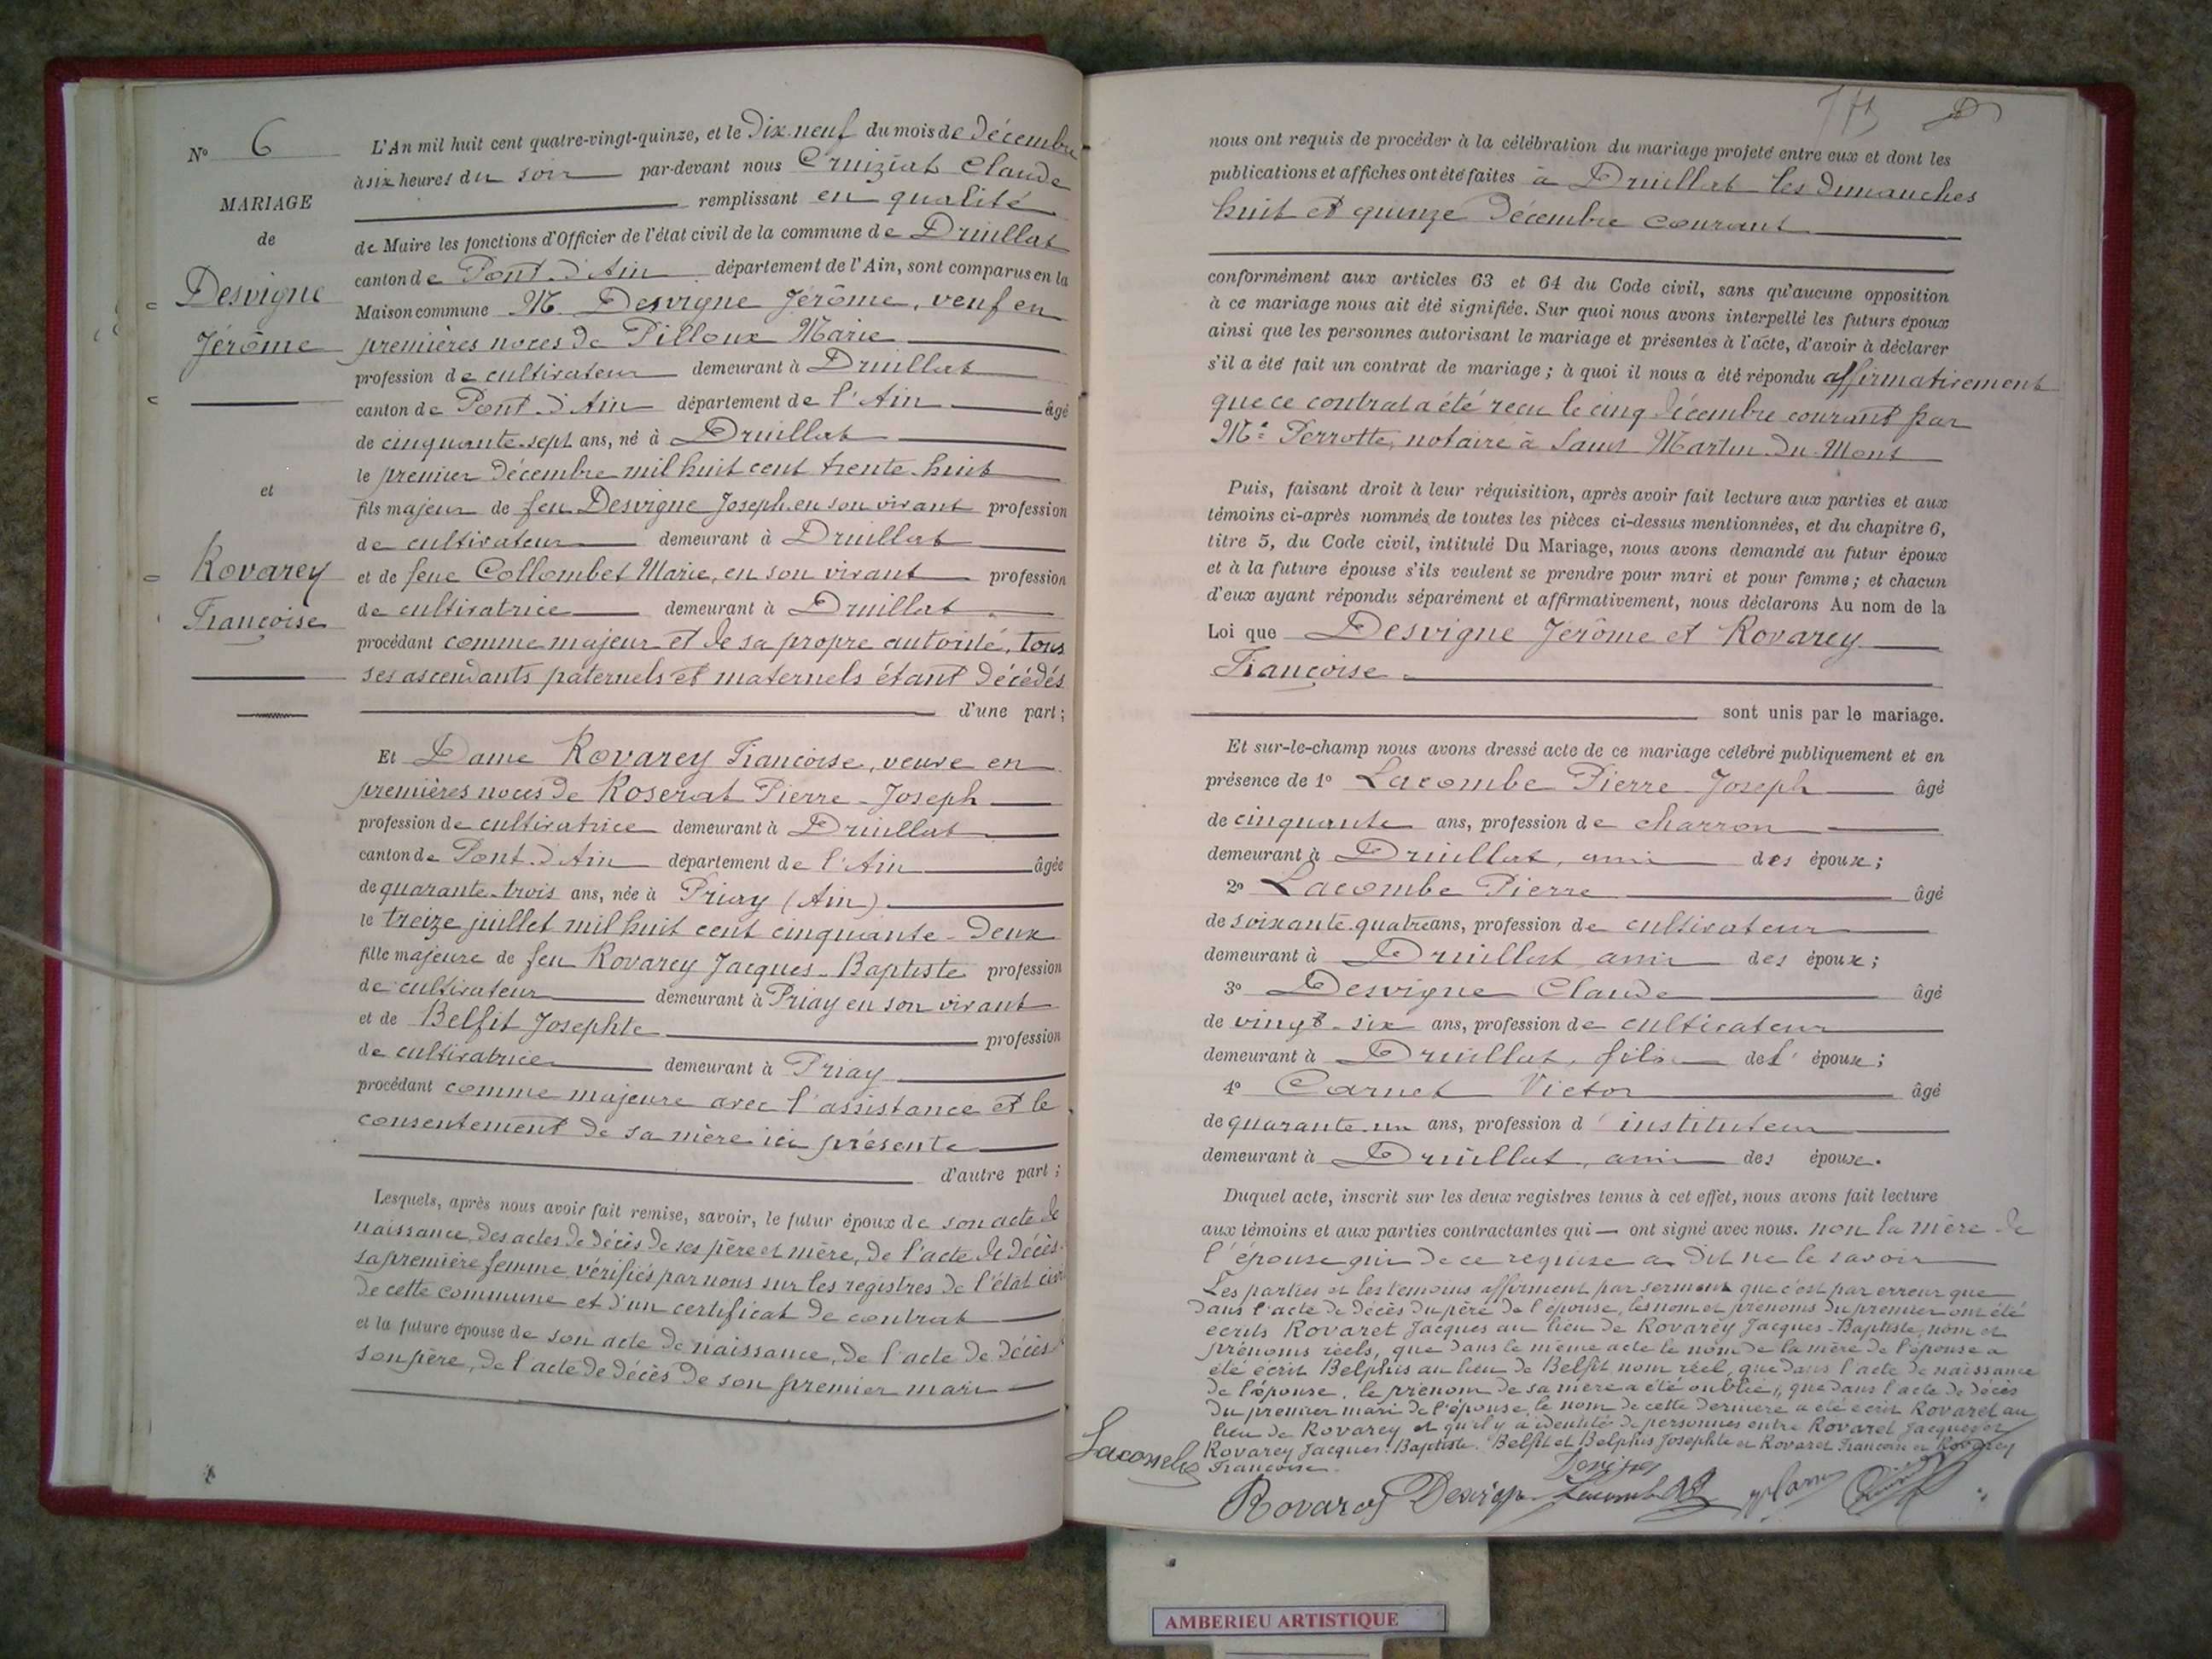 N° 6
MARIAGE
de
Desvigne
Jérôme
et
Rovarey
Françoise
L'An mil huit cent quatre-vingt-quinze, et le Dix-neuf du mois de Décembre
à six heures du soir par-devant nous Cruiziat Claude
remplissant en qualité
de Maire les fonctions d'Officier de l'état civil de la commune de Druillat
canton de Pont-d'Ain département de l'Ain, sont comparus en la
Maison commune M. Desvigne Jérôme, veuf en
premières noces de Pilloux Marie
profession de cultivateur demeurant à Druillat
canton de Pont-d'Ain département de l'Ain âgé
de cinquante-sept ans, né à Druillat
le premier Décembre mil huit cent trente-huit
fils majeur de feu Desvigne Joseph en son vivant profession
de cultivateur demeurant à Druillat
et de feue Collombet Marie, en son vivant profession
de cultivatrice demeurant à Druillat
procédant comme majeur et de sa propre autorité, tous
ses ascendants paternels et maternels étant décédés
d'une part;
Et Dame Rovarey Françoise, veuve en
premières noces de Roserat Pierre-Joseph
profession de cultivatrice demeurant à Druillat
canton de Pont-d'Ain département de l'Ain âgée
de quarante-trois ans, née à Priay (Ain)
le treize juillet mil huit cent cinquante-deux
fille majeure de feu Rovarey Jacques-Baptiste profession
de cultivateur demeurant à Priay en son vivant
et de Belfit Josephte profession
de cultivatrice demeurant à Priay
procédant comme majeure avec l'assistance et le
consentement de sa mère ici présente
d'autre part;
Lesquels, après nous avoir fait remise, savoir, le futur époux de son acte de
naissance, des actes de décès de ses père et mère, de l'acte de décès
sa première femme vérifiés par nous sur les registres de l'état civil
de cette commune et d'un certificat de contrat
et la future épouse de son acte de naissance, de l'acte de décès
son père, de l'acte de décès de son premier mari
nous ont requis de procéder à la célébration du mariage projeté entre eux et dont les
publications et affiches ont été faites à Druillat les dimanches
huit et quinze Décembre courant
conformément aux articles 63 et 64 du Code civil, sans qu'aucune opposition
à ce mariage nous ait été signifiée. Sur quoi nous avons interpellé les futurs époux
ainsi que les personnes autorisant le mariage et présentes à l'acte, d'avoir à déclarer
s'il a été fait un contrat de mariage; à quoi il nous a été répondu affirmativement
que ce contrat a été reçu le cinq Décembre courant par
Me Perrotte, notaire à Saint Martin-du-Mont
Puis, faisant droit à leur réquisition, après avoir fait lecture aux parties et aux
témoins ci-après nommés de toutes les pièces ci-dessus mentionnées, et du chapitre 6,
titre 5, du Code civil, intitulé Du Mariage, nous avons demandé au futur époux
et à la future épouse s'ils veulent se prendre pour mari et pour femme; et chacun
d'eux ayant répondu séparément et affirmativement, nous déclarons Au nom de la
Loi que Desvigne Jérôme et Rovarey
Françoise
sont unis par le mariage.
Et sur-le-champ nous avons dressé acte de ce mariage célébré publiquement et en
présence de 1° Lacombe Pierre-Joseph âgé
de cinquante ans, profession de charron
demeurant à Druillat, ami des époux;
2° Lacombe Pierre âgé
de soixante-quatre ans, profession de cultivateur
demeurant à Druillat ami des époux;
3° Desvigne Claude âgé
de vingt-six ans, profession de cultivateur
demeurant à Druillat, fils de l'époux;
4° Carnet Victor âgé
de quarante-un ans, profession d'instituteur
demeurant à Druillat, ami des époux.
Duquel acte, inscrit sur les deux registres tenus à cet effet, nous avons fait lecture
aux témoins et aux parties contractantes qui — ont signé avec nous. non la mère de
l'épouse qui de ce requise a dit ne le savoir
Les parties et les témoins affirment par serment que c'est par erreur que
dans l'acte de décès du père de l'épouse, les nom et prénoms du premier ont été
écrits Rovaret Jacques au lieu de Rovarey Jacques-Baptiste, nom et
prénoms réels, que dans le même acte le nom de la mère de l'épouse a
été écrit Belphis au lieu de Belfit nom réel, que dans l'acte de naissance
de l'épouse, le prénom de sa mère a été oublié, que dans l'acte de décès
du premier mari de l'épouse le nom de cette dernière a été écrit Rovaret au
lieu de Rovarey et qu'il y a identité de personnes entre Rovaret Jacques et
Rovarey Jacques-Baptiste. Belfit et Belphis Josephte et Rovaret Françoise et Rovarey
Françoise.
Lacombe
Rovarey Desvigne Lacombe
AMBERIEU ARTISTIQUE